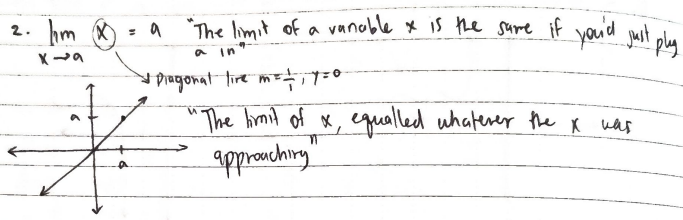 2. lim x = a "The limit of a variable x is the same if you'd just plug
x→a a in"
Diagonal line m = 1/1, y=0
a
"The limit of x, equalled whatever the x was
a approaching"